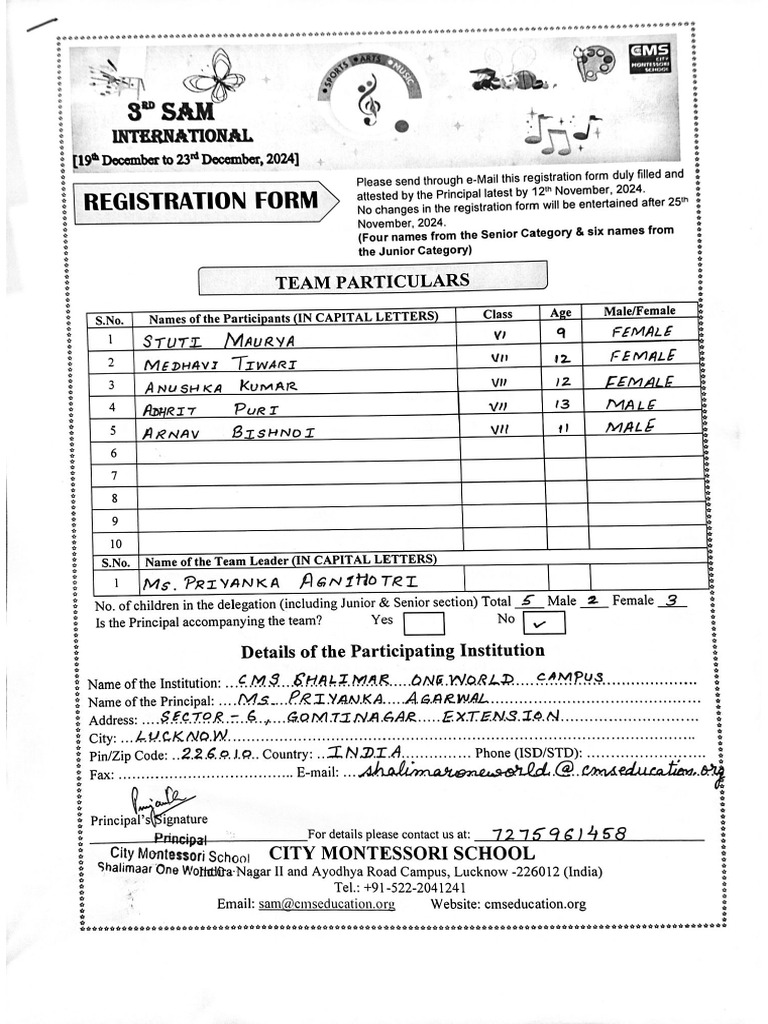 SPORTS • ARTS • MUSIC
CMS
CITY
MONTESSORI
SCHOOL
3RD SAM
INTERNATIONAL
[19th December to 23rd December, 2024]
REGISTRATION FORM
Please send through e-Mail this registration form duly filled and
attested by the Principal latest by 12th November, 2024.
No changes in the registration form will be entertained after 25th
November, 2024.
(Four names from the Senior Category & six names from
the Junior Category)
TEAM PARTICULARS
S.No. Names of the Participants (IN CAPITAL LETTERS) Class Age Male/Female
1 STUTI MAURYA VI 9 FEMALE
2 MEDHAVI TIWARI VII 12 FEMALE
3 ANUSHKA KUMAR VII 12 FEMALE
4 ADHRIT PURI VII 13 MALE
5 ARNAV BISHNOI VII 11 MALE
6
7
8
9
10
S.No. Name of the Team Leader (IN CAPITAL LETTERS)
1 MS. PRIYANKA AGNIHOTRI
No. of children in the delegation (including Junior & Senior section) Total 5 Male 2 Female 3
Is the Principal accompanying the team? Yes No ✓
Details of the Participating Institution
Name of the Institution: CMS SHALIMAR ONEWORLD CAMPUS
Name of the Principal: MS. PRIYANKA AGARWAL
Address: SECTOR-6, GOMTINAGAR EXTENSION
City: LUCKNOW
Pin/Zip Code: 226010 Country: INDIA Phone (ISD/STD):
Fax: E-mail: shalimaroneworld@cmseducation.org
Principal's Signature
Principal
City Montessori School
Shalimaar One World
For details please contact us at: 7275961458
CITY MONTESSORI SCHOOL
Indira Nagar II and Ayodhya Road Campus, Lucknow -226012 (India)
Tel.: +91-522-2041241
Email: sam@cmseducation.org Website: cmseducation.org